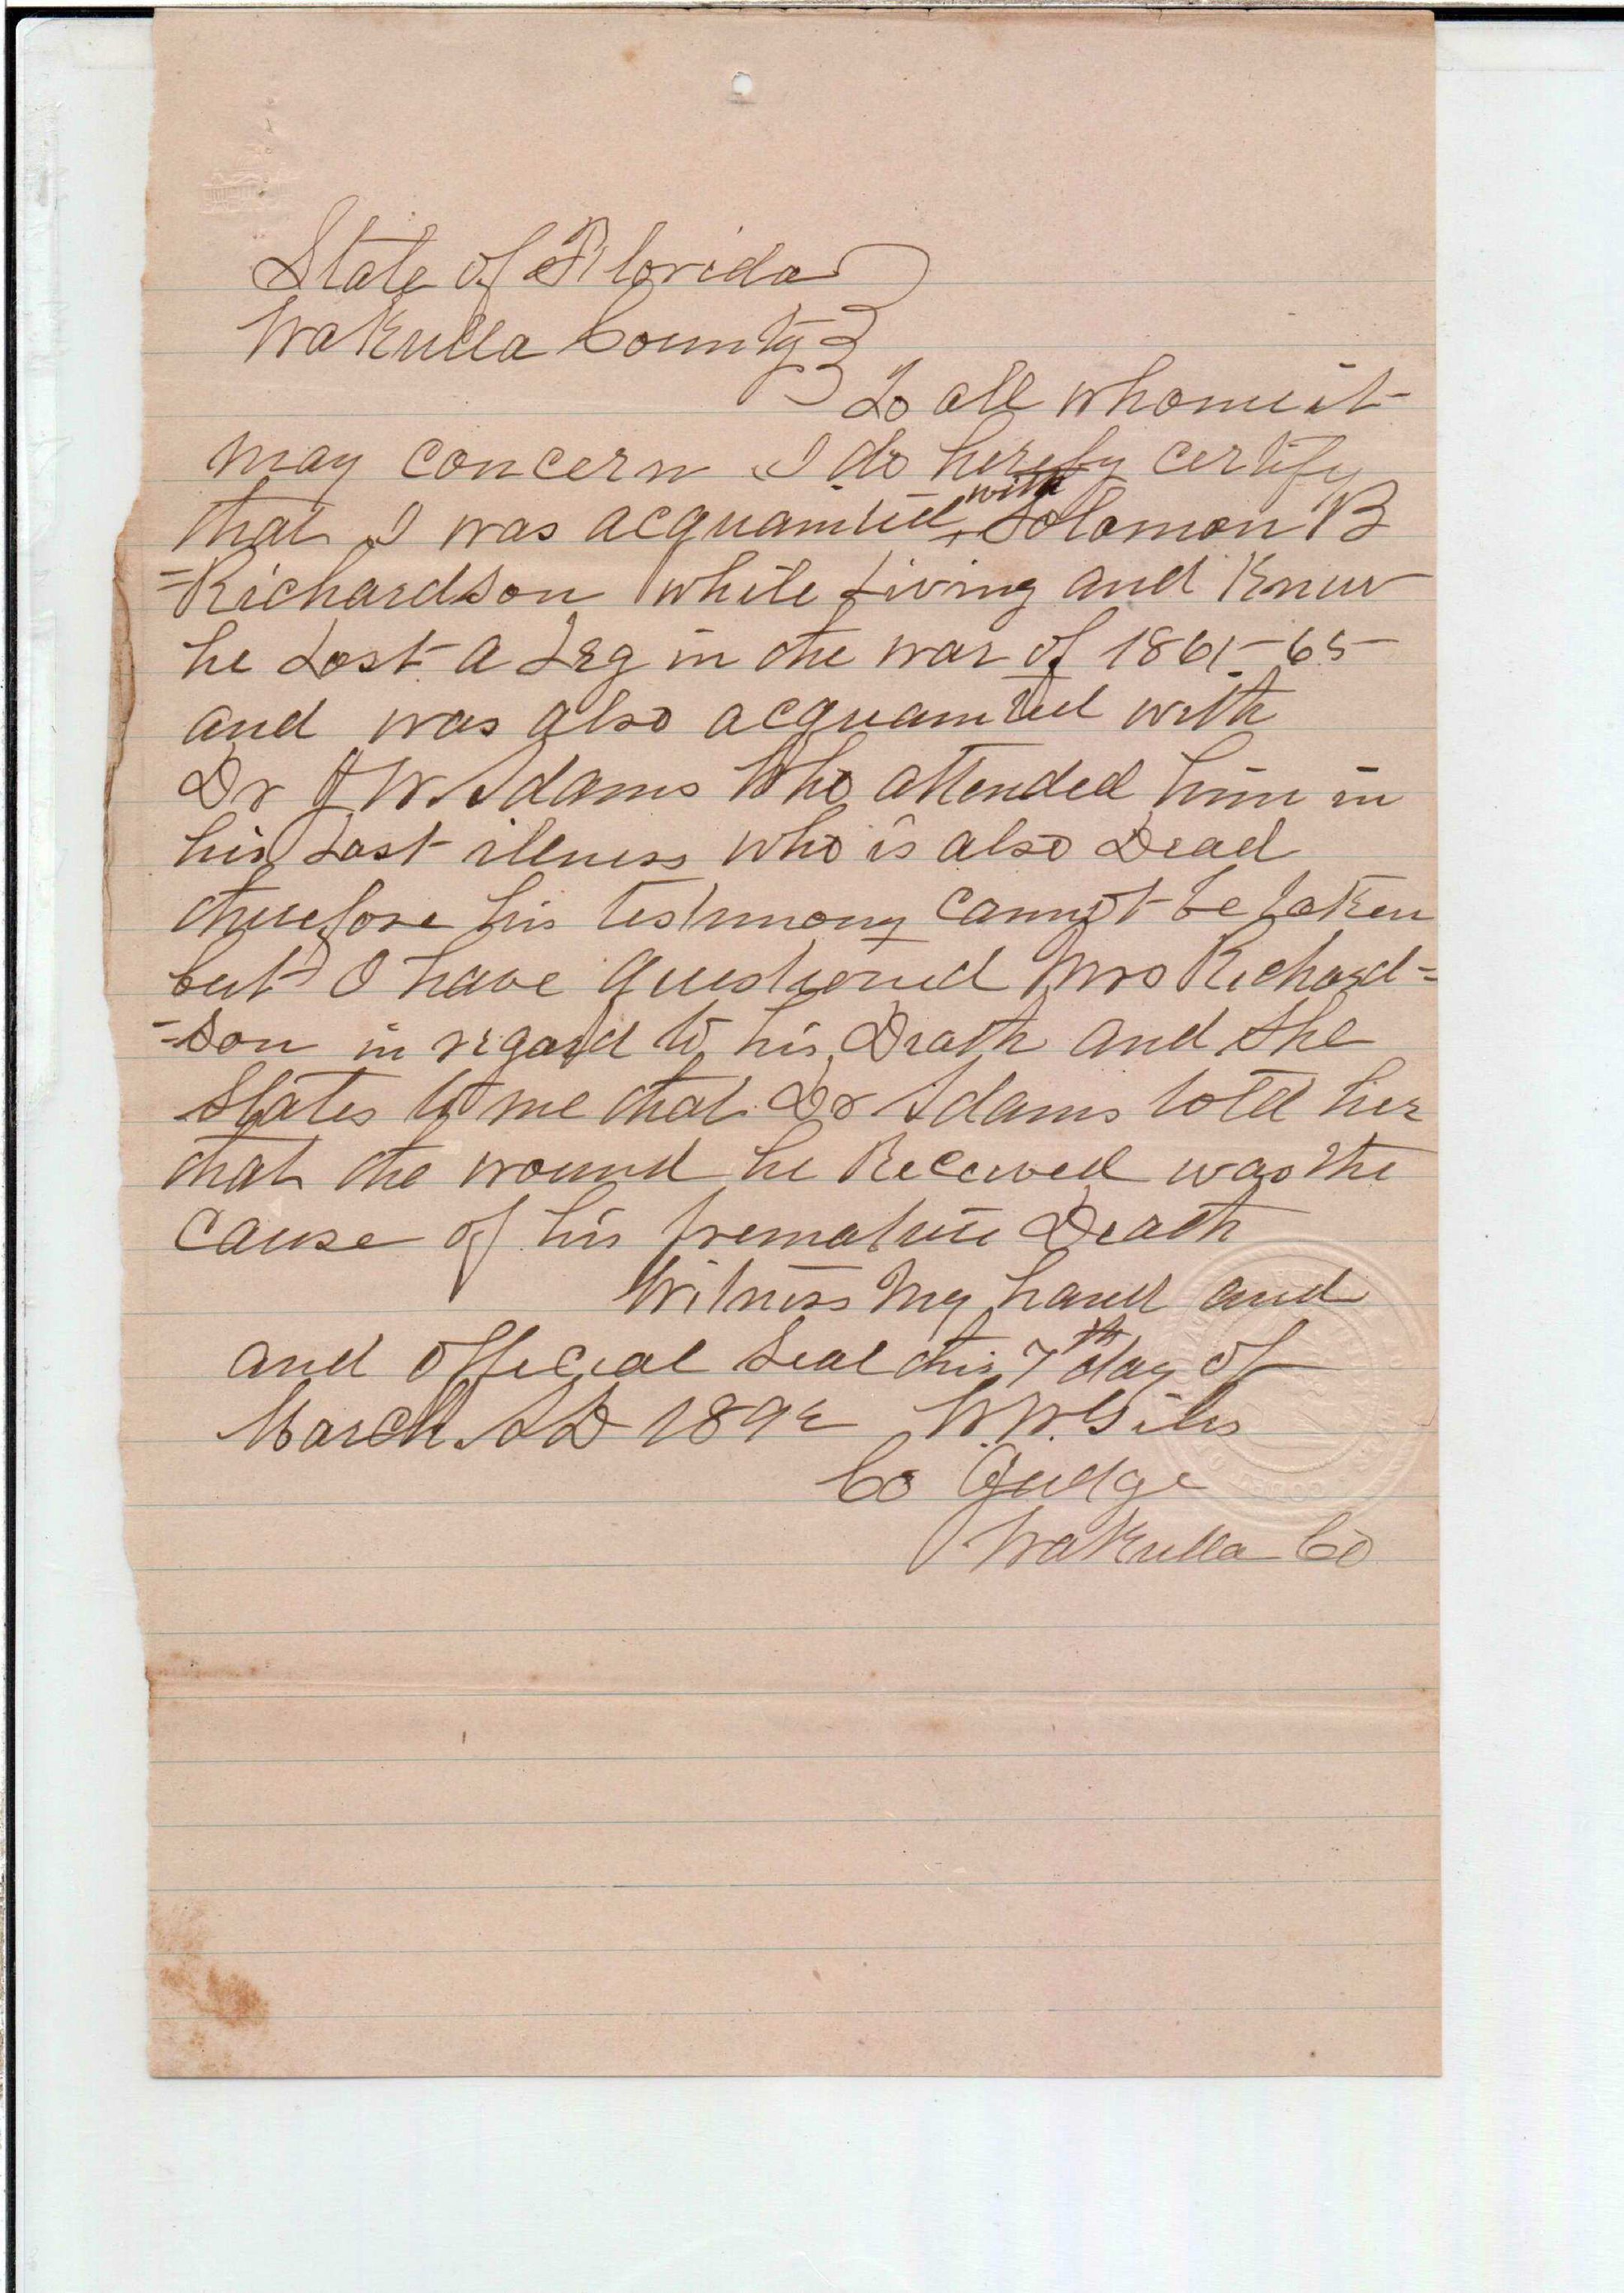 State of Florida
Wakulla County
To all whome it
may concern I do hereby certify
that I was acquainted with Solomon B
=Richardson while Living and Knew
he Lost a Leg in the war of 1861-65-
and was also acquainted with
Dr J W. Adams Who attended him in
his Last illness who is also Dead
therefore his testimony cannot be taken
but I have questioned Mrs Richard=
=son in regard to his Death and She
States to me that Dr Adams told her
that the wound he Received was the
cause of his premature Death
Witness My hand and
and official Seal this 7th day of
March AD 189
W. W. Giles
Co Judge
Wakulla Co